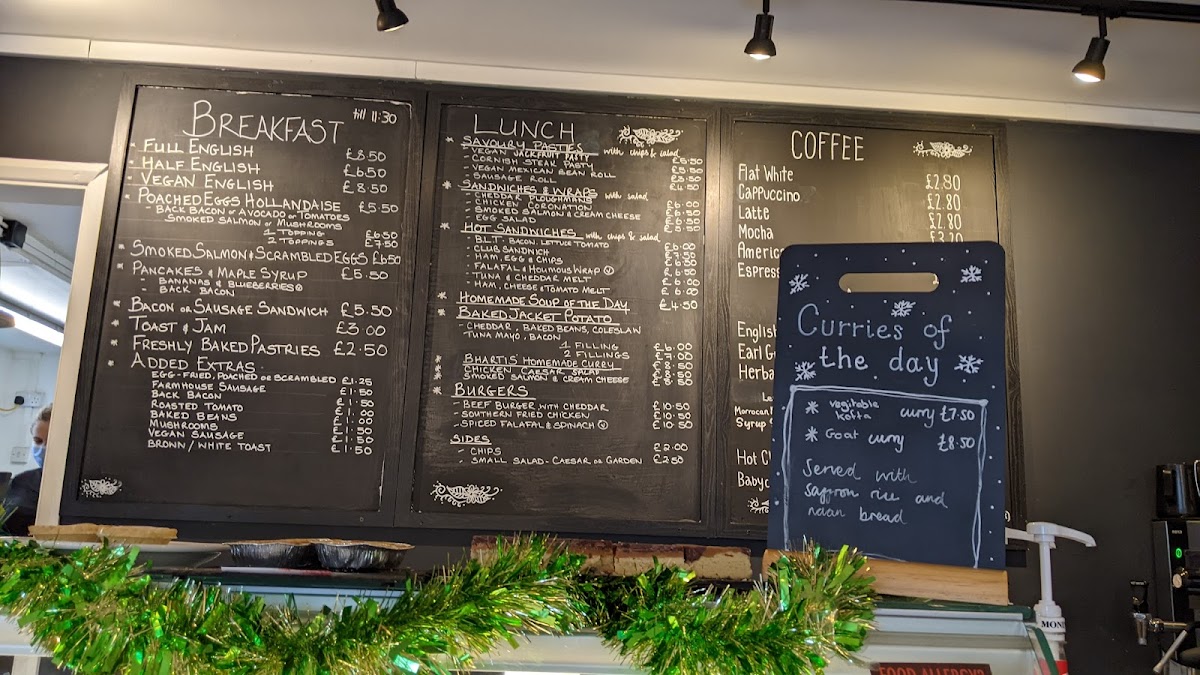 BREAKFAST till 11:30
* FULL ENGLISH £8.50
* HALF ENGLISH £6.50
* VEGAN ENGLISH £8.50
* POACHED EGGS HOLLANDAISE £5.50
- BACK BACON OR AVOCADO OR TOMATOES
SMOKED SALMON OR MUSHROOMS
1 TOPPING £6.50
2 TOPPINGS £7.50
* SMOKED SALMON & SCRAMBLED EGGS £6.50
* PANCAKES & MAPLE SYRUP £5.50
- BANANAS & BLUEBERRIES Ⓥ
- BACK BACON
* BACON OR SAUSAGE SANDWICH £5.50
* TOAST & JAM £3.00
* FRESHLY BAKED PASTRIES £2.50
* ADDED EXTRAS
EGG - FRIED, POACHED OR SCRAMBLED £1.25
FARMHOUSE SAUSAGE £1.50
BACK BACON £1.50
ROASTED TOMATO £1.00
BAKED BEANS £1.00
MUSHROOMS £1.50
VEGAN SAUSAGE £1.50
BROWN / WHITE TOAST £1.50
LUNCH
* SAVOURY PASTIES with chips & salad
- VEGAN JACKFRUIT PASTY
- CORNISH STEAK PASTY
- VEGAN MEXICAN BEAN ROLL
- SAUSAGE ROLL £4.50
* SANDWICHES & WRAPS with salad
- CHEDDAR PLOUGHMANS
- CHICKEN CORONATION
- SMOKED SALMON & CREAM CHEESE
- EGG SALAD
* HOT SANDWICHES with chips & salad
- B.L.T. BACON, LETTUCE TOMATO
- CLUB SANDWICH
- HAM, EGG & CHIPS
- FALAFAL & HOUMOUS WRAP Ⓥ
- TUNA & CHEDDAR MELT
- HAM, CHEESE & TOMATO MELT £6.00
* HOMEMADE SOUP OF THE DAY £4.50
* BAKED JACKET POTATO
- CHEDDAR, BAKED BEANS, COLESLAW
TUNA MAYO, BACON
1 FILLING £6.00
2 FILLINGS
* BHARTIS' HOMEMADE CURRY
* CHICKEN CAESAR SALAD
* SMOKED SALMON & CREAM CHEESE
* BURGERS
- BEEF BURGER WITH CHEDDAR £10.50
- SOUTHERN FRIED CHICKEN £10.50
- SPICED FALAFAL & SPINACH Ⓥ £10.50
SIDES
- CHIPS £2.00
- SMALL SALAD - CAESAR OR GARDEN £2.50
COFFEE
Flat White £2.80
Cappuccino £2.80
Latte £2.80
Mocha £3.20
Americ
Espress
English
Earl G
Herba
Moroccan
Syrup
Hot C
Babyc
Curries of
the day
* vegitable
kofta curry £7.50
* Goat curry £8.50
Served with
saffron rice and
naan bread
MON
FOOD ALLERGY?